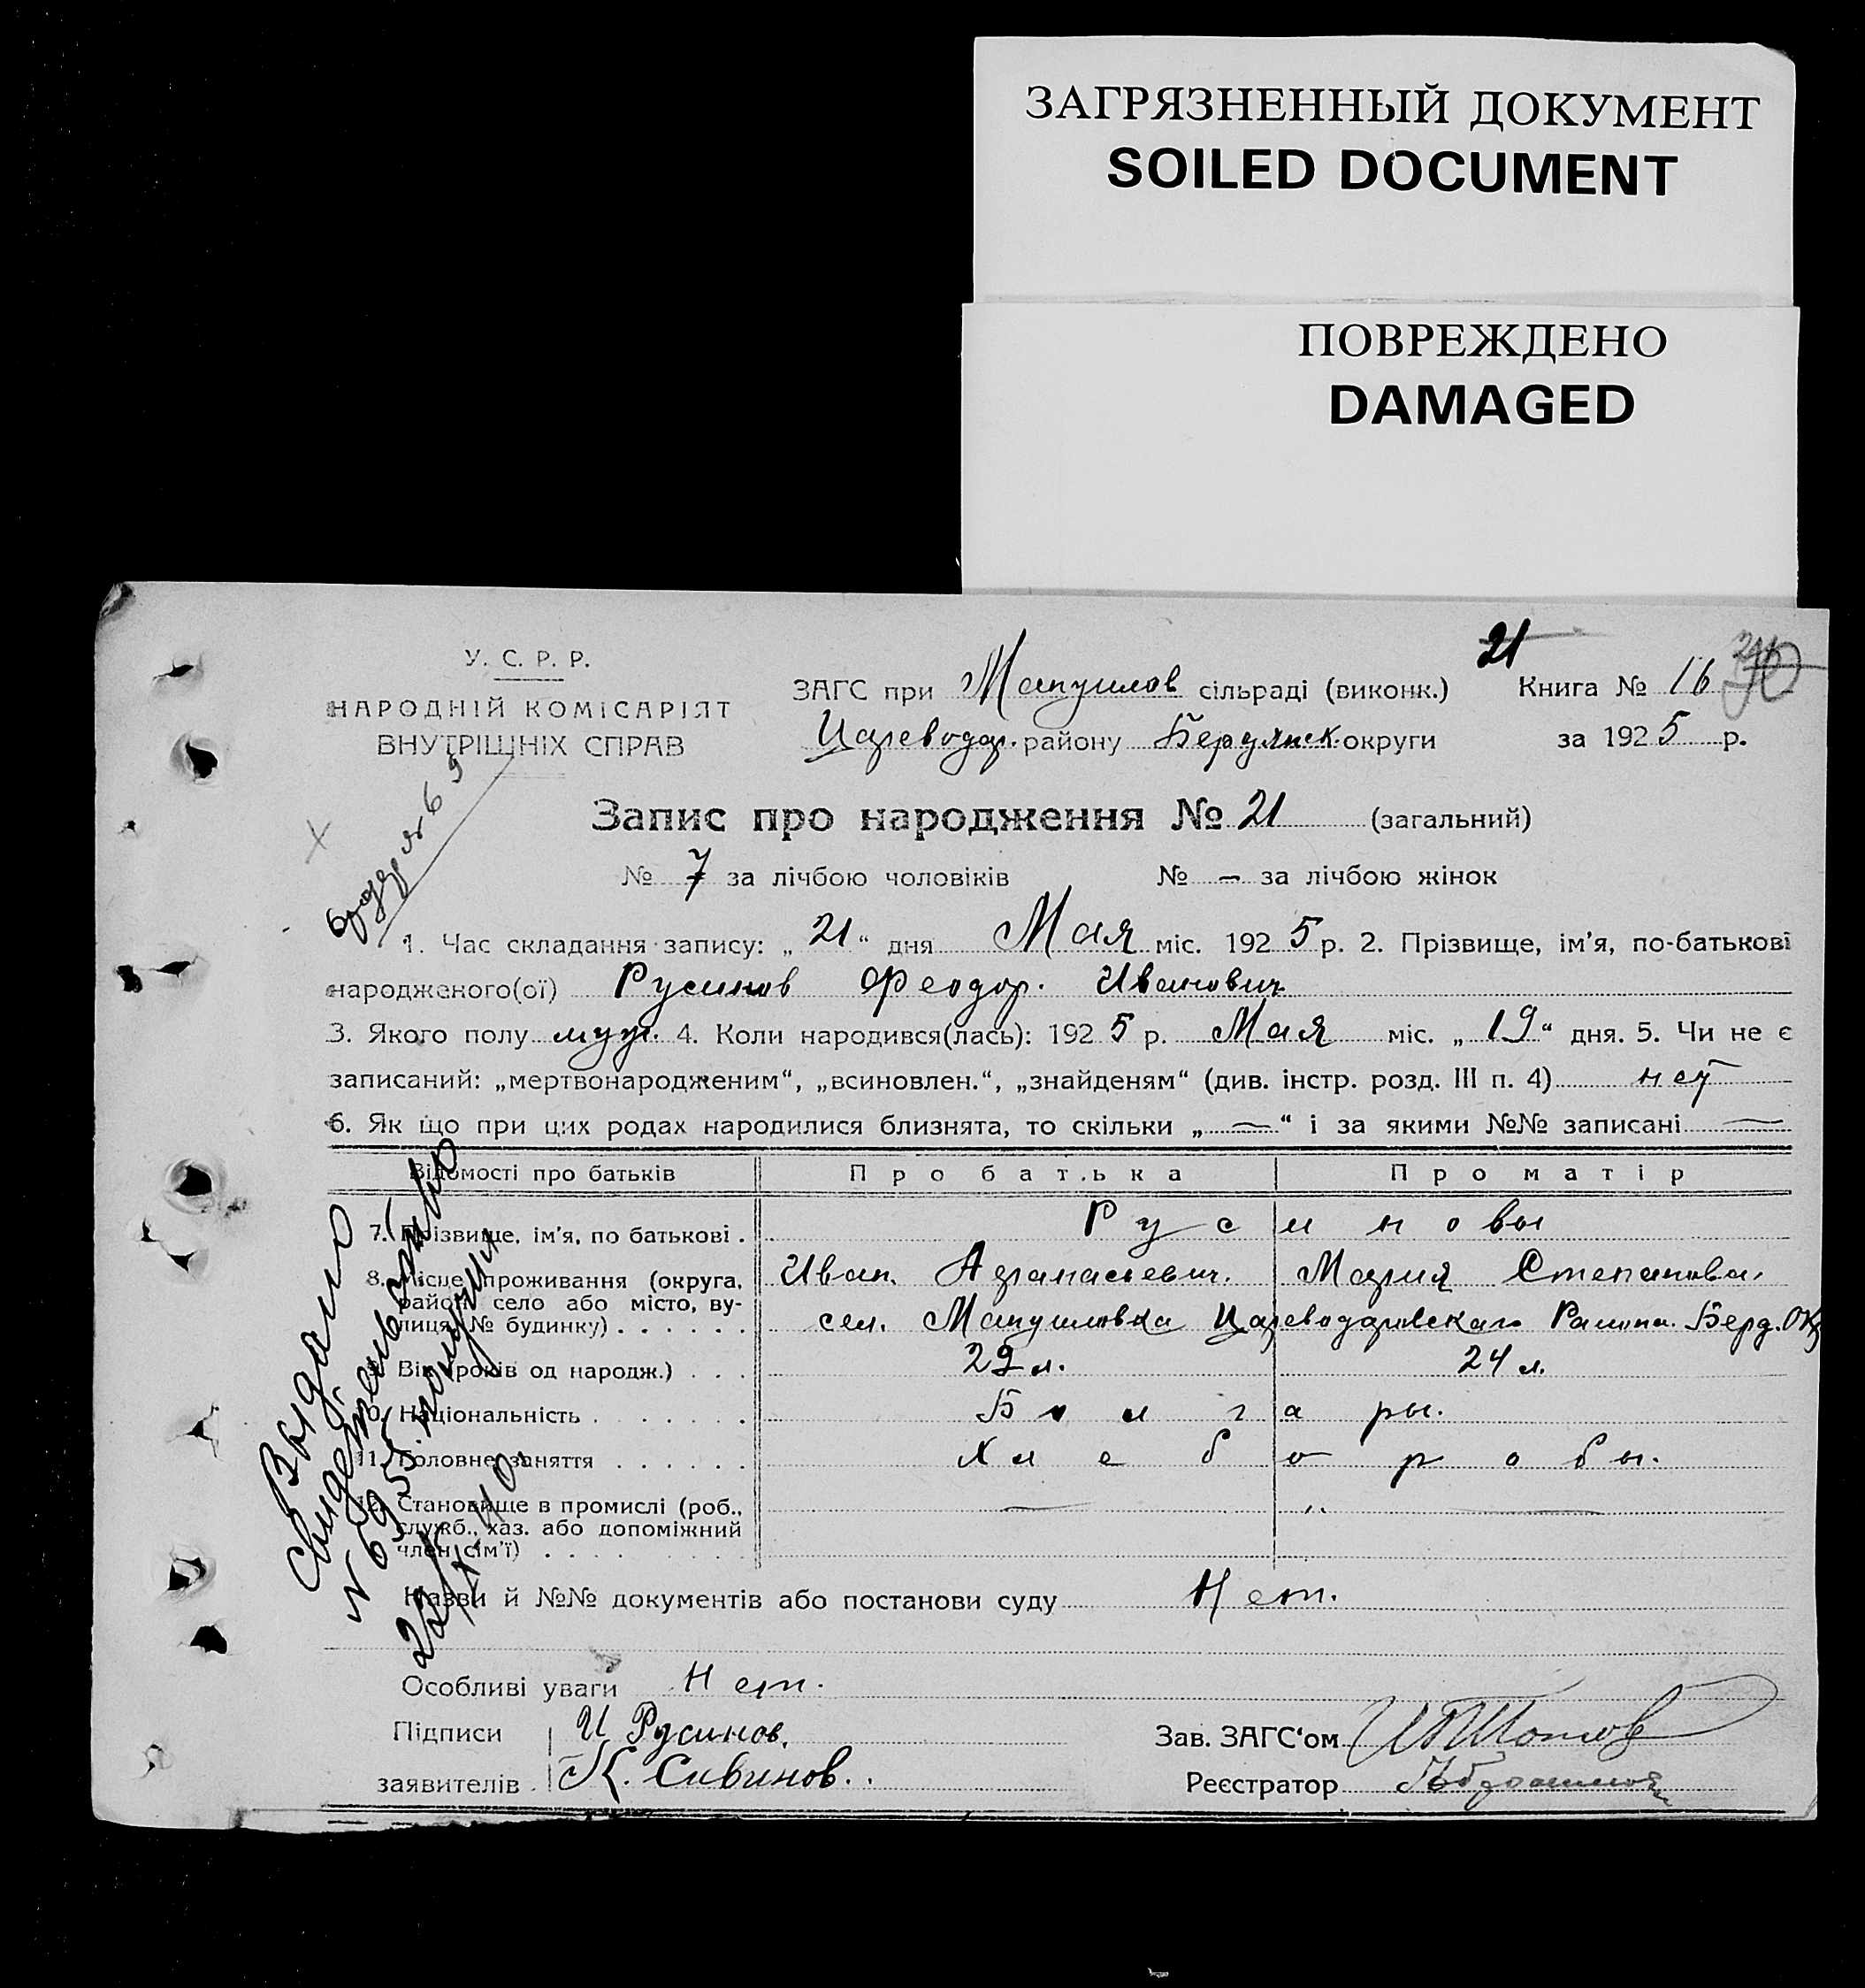 ЗАГРЯЗНЕННЫЙ ДОКУМЕНТ
SOILED DOCUMENT
ПОВРЕЖДЕНО
DAMAGED
21
У. С. Р. Р.
НАРОДНІЙ КОМІСАРІЯТ
ВНУТРІШНІХ СПРАВ
ЗАГС при Мануилов сільраді (виконк.) Книга № 16
Цареводар. району Бердянск округи за 1925 р.
Запис про народження № 21 (загальний)
№ 7 за лічбою чоловіків № — за лічбою жінок
1. Час складання запису: „21“ дня Мая міс. 1925 р. 2. Прізвище, ім’я, по-батькові
народженого(ої) Русинов Феодор. Иванович
3. Якого полу муж. 4. Коли народився(лась): 1925 р. Мая міс. „19“ дня. 5. Чи не є
записаний: „мертвонародженим“, „всиновлен.“, „знайденям“ (див. інстр. розд. III п. 4) нет
6. Як що при цих родах народилися близнята, то скільки „—“ і за якими №№ записані —
Відомості про батьків Про батька Про матір
7. Прізвище, ім’я, по батькові . Русиновы
Иван. Афанасьевич. Мария Степанова.
8. Місце проживання (округа, район, село або місто, вулиця, № будинку) . . . . . . сел. Мануиловка Цареводаровскаго Района. Берд. Ок
9. Вік (років од народж.) . . . 29 л. 24 л.
10. Національність . . . . . . . Болгары.
11. Головне заняття . . . . . . Хлеборобы.
12. Становище в промислі (роб., служб., хаз. або допоміжний член сім’ї) . — „ —
Назви й №№ документів або постанови суду Нет.
Особливі уваги Нет.
Підписи И Русинов. Зав. ЗАГС‘ом
заявителів К. Сивинов. Реєстратор
Выдано
Свидетельство
№ 6955 получил